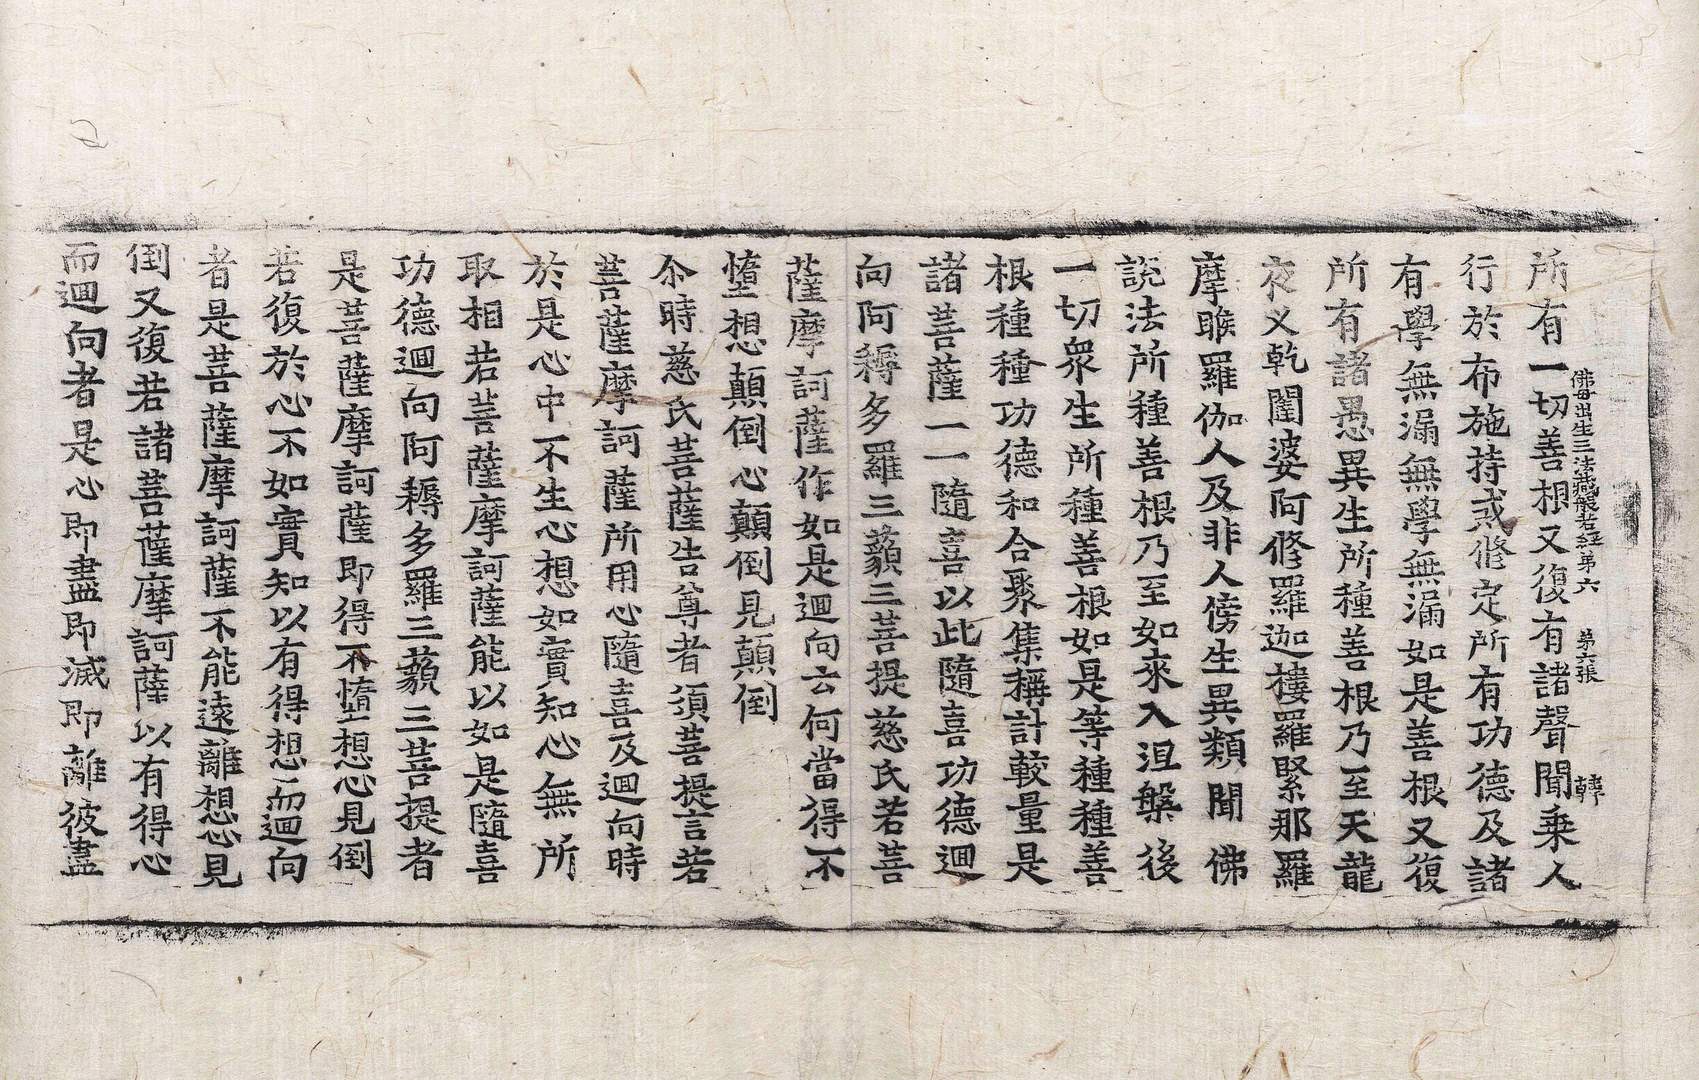 佛母出生三法藏般若經第六 第六張 韓
所有一切善根又復有諸聲聞乗人
行於布施持戒修定所有功德及諸
有學無漏無學無漏如是善根又復
所有諸愚異生所種善根乃至天龍
夜叉乾闥婆阿修羅迦樓羅緊那羅
摩睺羅伽人及非人傍生異類聞佛
說法所種善根乃至如來入涅槃後
一切衆生所種善根如是等種種善
根種種功德和合聚集稱計較量是
諸菩薩一一隨喜以此隨喜功德迴
向阿耨多羅三藐三菩提慈氏若菩
薩摩訶薩作如是迴向云何當得不
墮想顛倒心顛倒見顛倒
尒時慈氏菩薩告尊者須菩提言若
菩薩摩訶薩所用心隨喜及迴向時
於是心中不生心想如實知心無所
取相若菩薩摩訶薩能以如是隨喜
功德迴向阿耨多羅三藐三菩提者
是菩薩摩訶薩即得不墮想心見倒
若復於心不如實知以有得想而迴向
者是菩薩摩訶薩不能遠離想心見
倒又復若諸菩薩摩訶薩以有得心
而迴向者是心即盡即滅即離彼盡